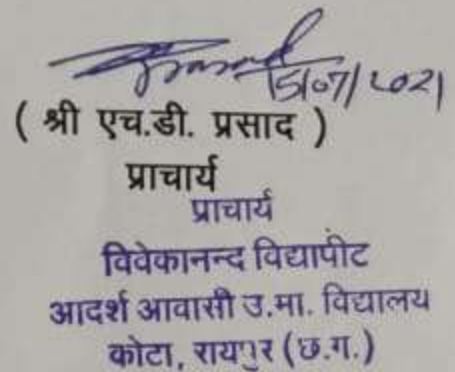 15/07/2021
( श्री एच.डी. प्रसाद )
प्राचार्य
प्राचार्य
विवेकानन्द विद्यापीट
आदर्श आवासी उ.मा. विद्यालय
कोटा, रायपुर (छ.ग.)